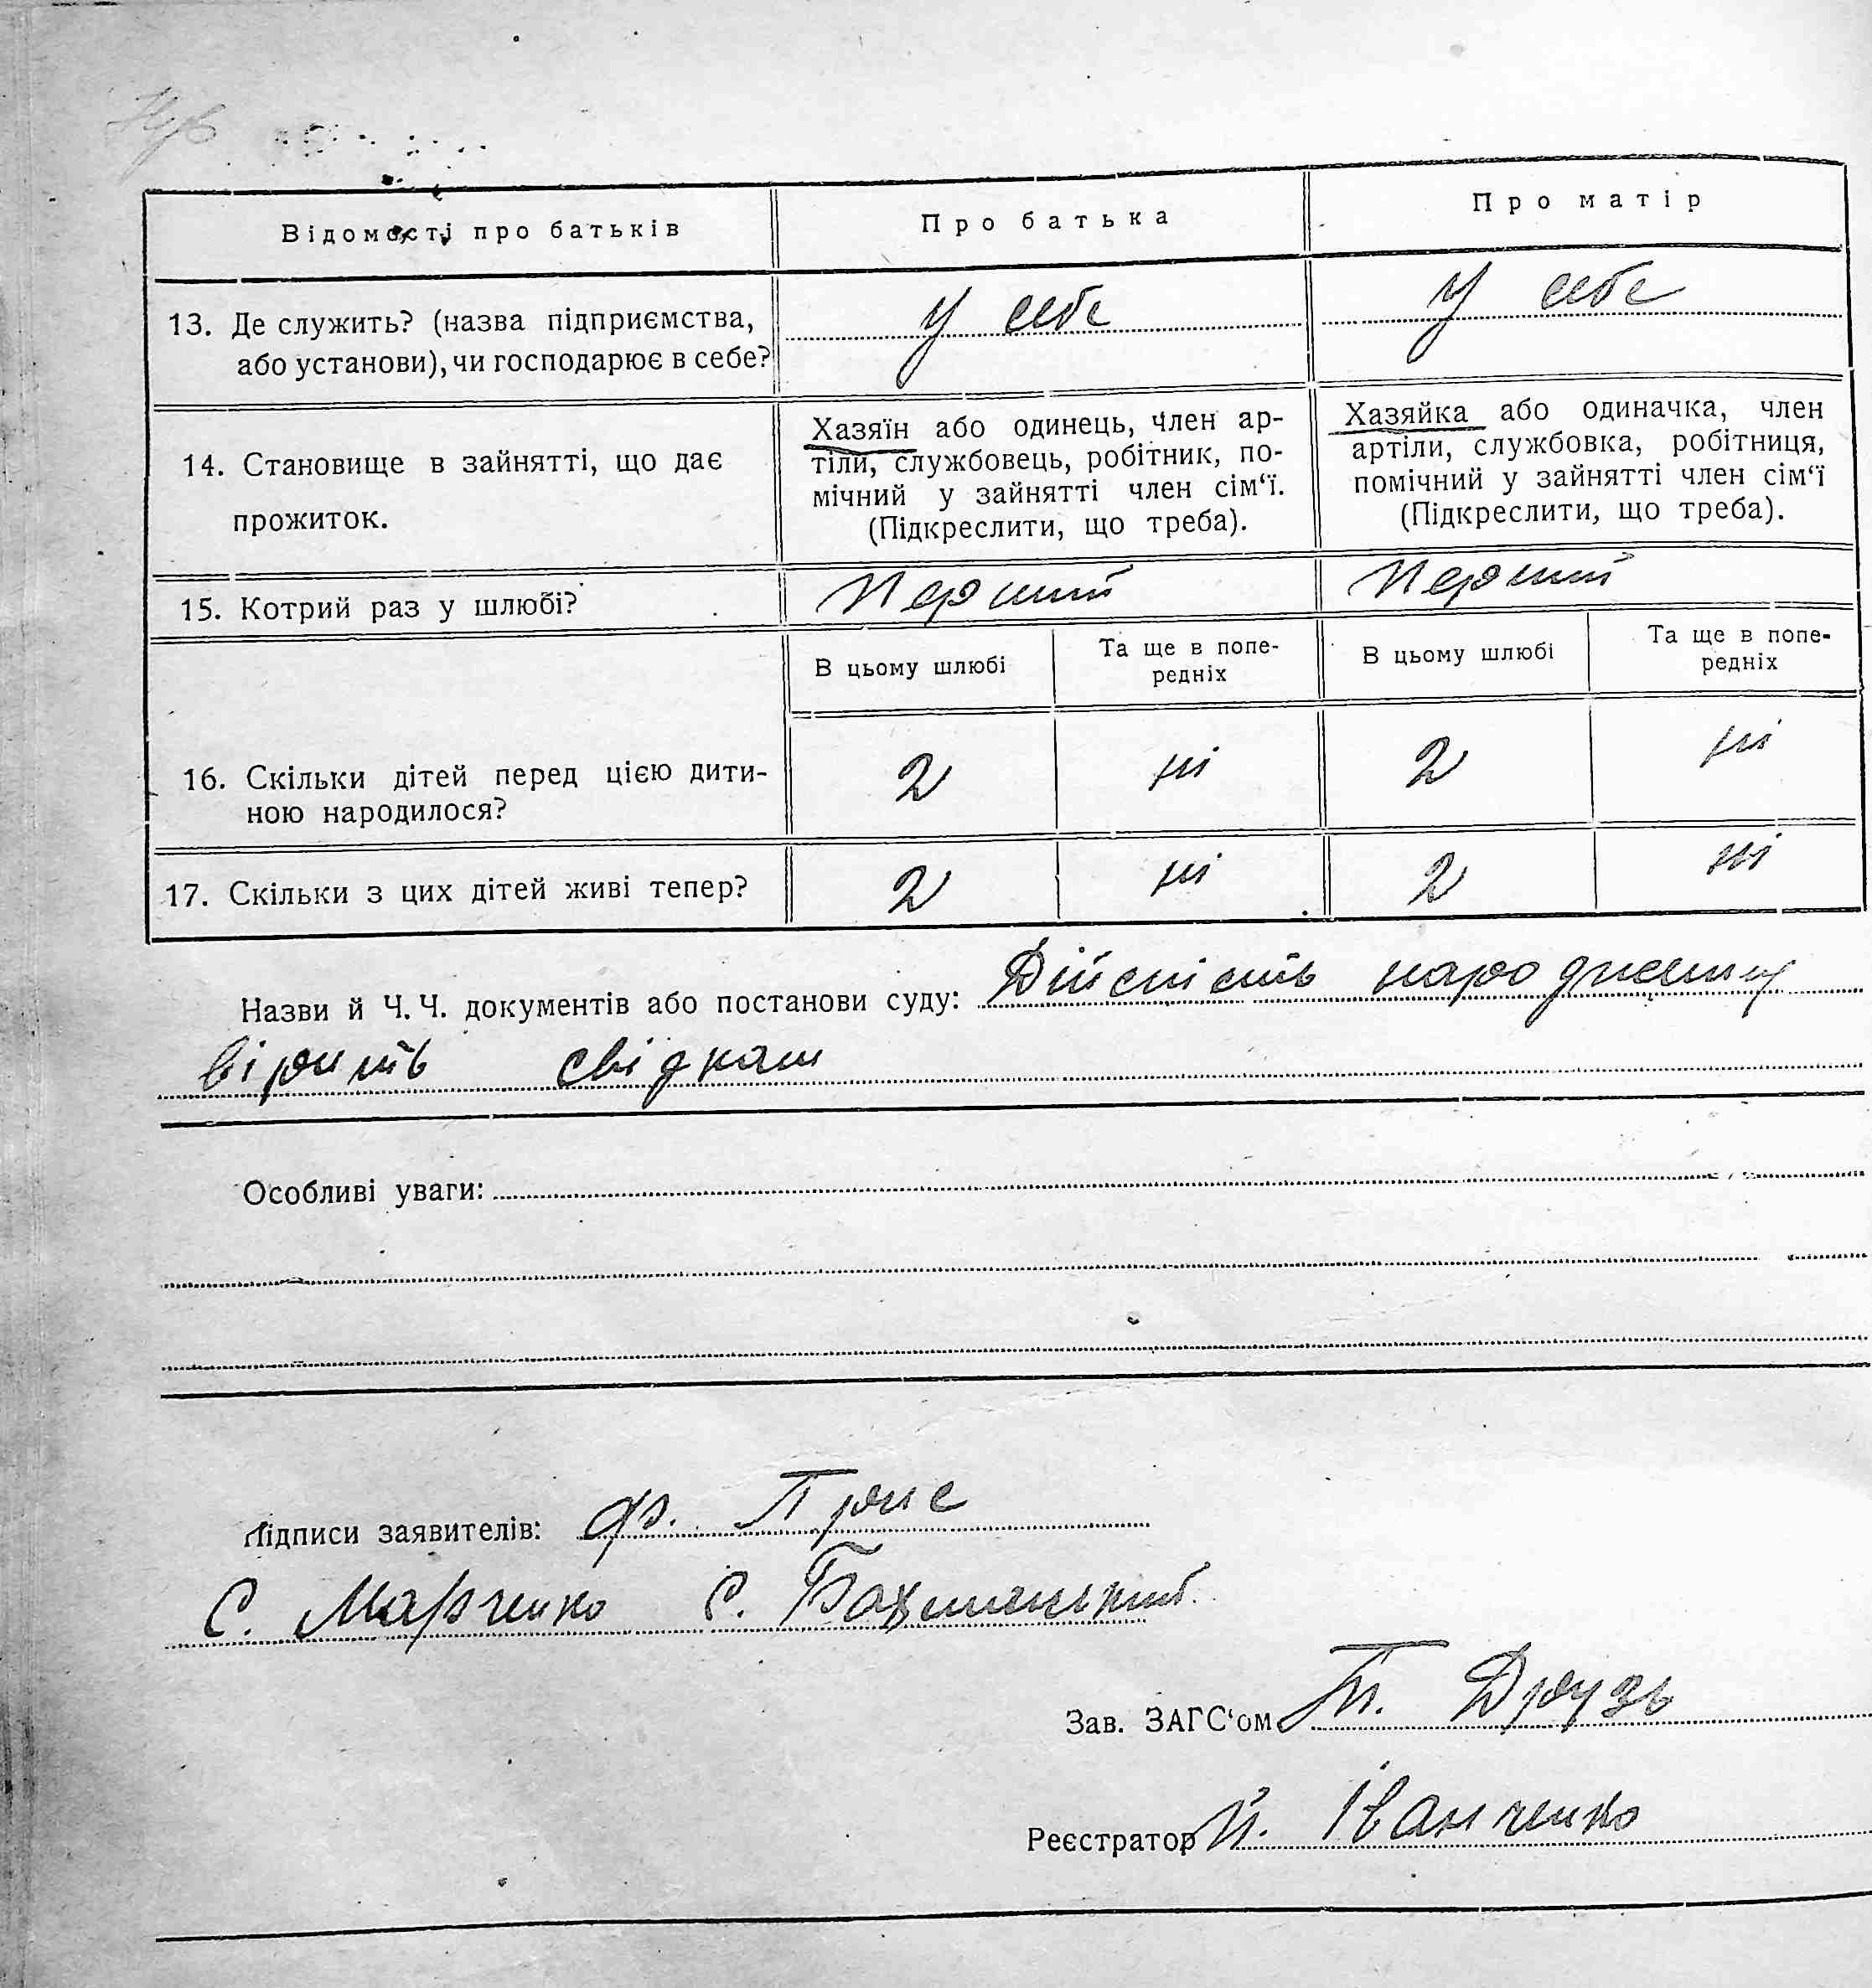 Відомості про батьків
Про батька
Про матір
13. Де служить? (назва підприємства,
або установи), чи господарює в себе?
У себе
У себе
14. Становище в зайнятті, що дає
прожиток.
Хазяїн або одинець, член ар-
тіли, службовець, робітник, по-
мічний у зайнятті член сім‘ї.
(Підкреслити, що треба).
Хазяйка або одиначка, член
артіли, службовка, робітниця,
помічний у зайнятті член сім‘ї
(Підкреслити, що треба).
15. Котрий раз у шлюбі?
Перший
Перший
В цьому шлюбі
Та ще в попе-
редніх
В цьому шлюбі
Та ще в попе-
редніх
16. Скільки дітей перед цією дити-
ною народилося?
2
ні
2
ні
17. Скільки з цих дітей живі тепер?
2
ні
2
ні
Назви й Ч. Ч. документів або постанови суду: Дійсність народження
вірить свідкам
Особливі уваги:
Підписи заявителів: Ф. Прис
С. Марченко С.
Зав. ЗАГС‘ом Т. Друзь
Реєстратор Й. Іванченко